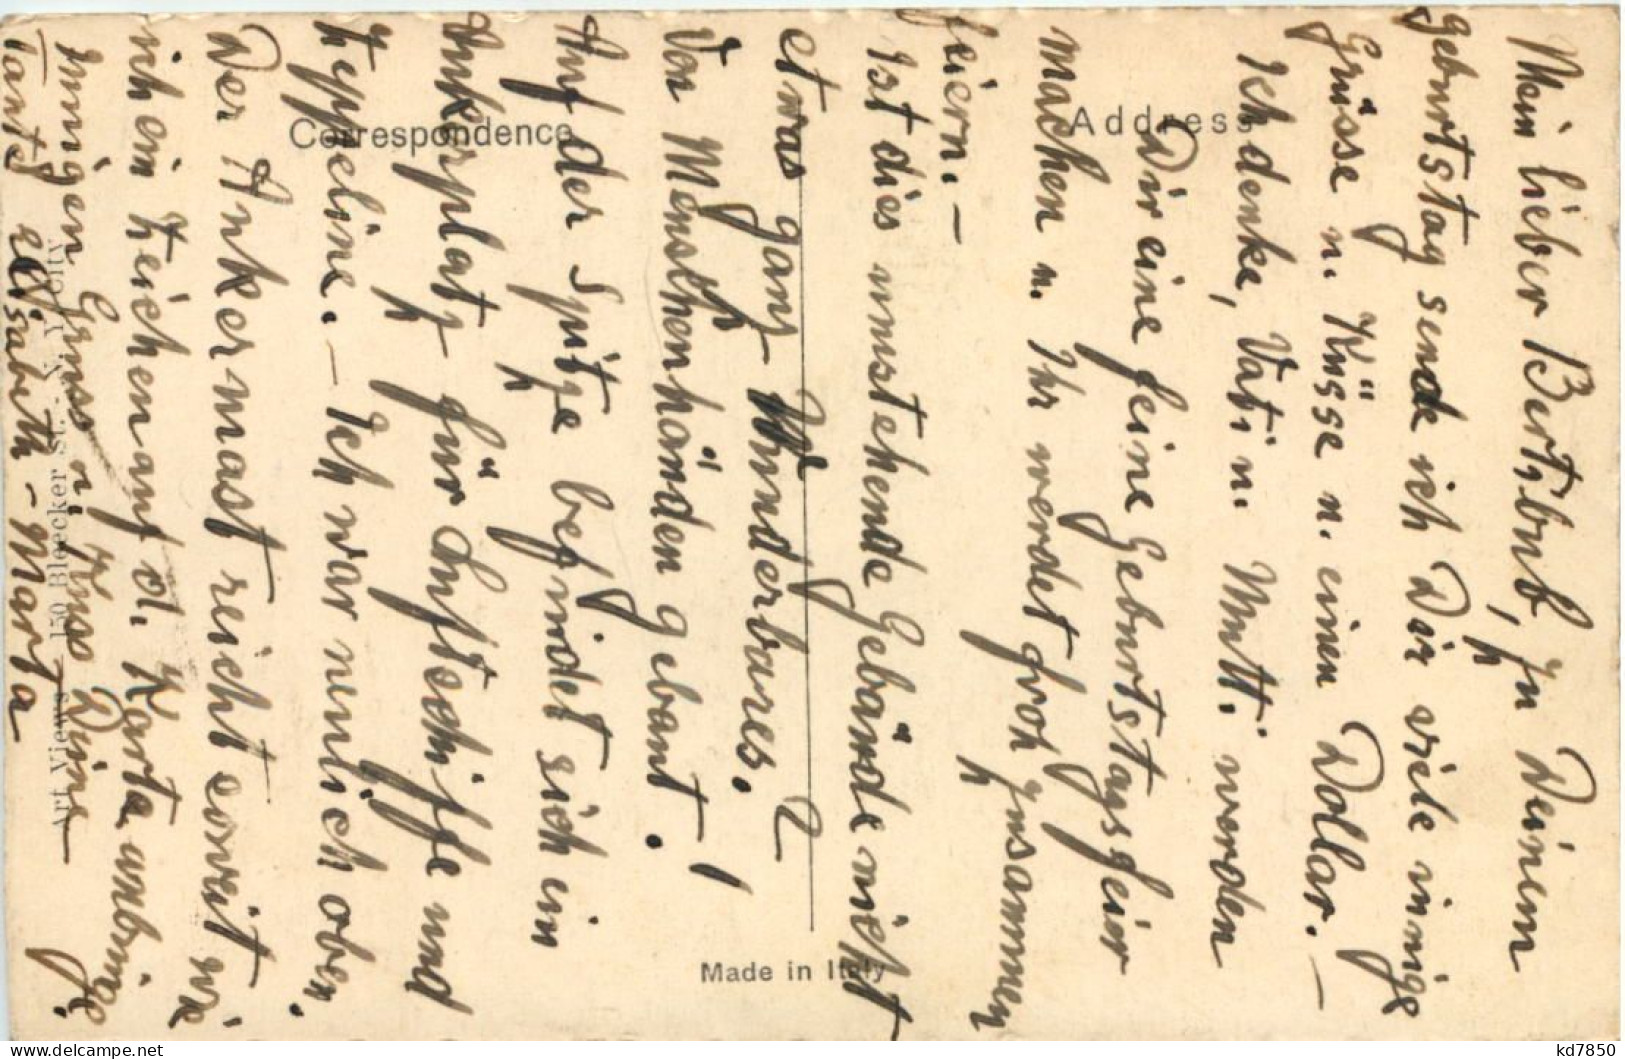 Mein lieber Bertibub, zu Deinem
Geburtstag sende ich Dir viele innige
Grüsse u. Küsse u. einen Dollar. –
Ich denke, Vati u. Mutti werden
Dir eine feine Geburtstagsfeier
machen u. Ihr werdet froh zusammen
feiern. –
Ist dies umstehende Gebäude nicht
etwas ganz Wunderbares?
Von Menschenhänden gebaut!
Auf der Spitze befindet sich ein
Ankerplatz für Luftschiffe und
Zeppeline. – Ich war neulich oben.
Der Ankermast reicht soweit wie
ich ein Zeichen auf d. Karte anbringe.
Innigen Gruss u. Kuss Deine
Tante Elisabeth-Marta
Correspondence
Address
Made in Italy
Art Views 150 Bleecker St. - N. Y. City
kd7850